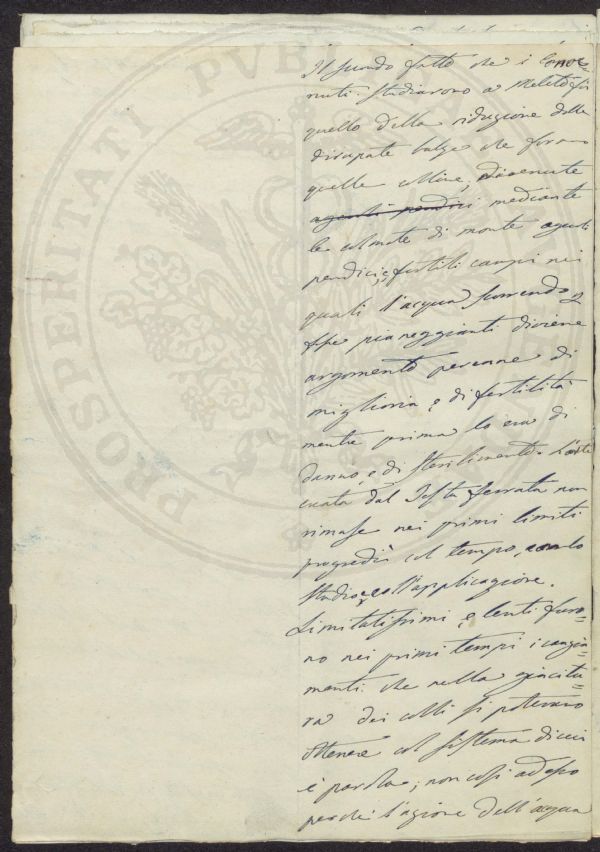 Il secondo fatto che i Conve=
nuti studiarono a Meleto fu
quello della riduzione delle
dirupate balze che sono
quelle colline, divenute
mediante
le colmate di monte agiati
pendici, e fertili campi nei
quali l'acqua scorrendo
pianeggianti diviene
argomento perenne di
miglioria, e di fertilità
mentre prima lo era di
danno, e di sterilimento. L'arte
creata dal Testaferrata non
rimase nei primi limiti
progredì col tempo, con lo
studio, e coll'applicazione.
Limitatissimi, e lenti furo=
no nei primi tempi i cangia=
menti che nella giacitu=
ra dei colli si potevano
ottenere col sistema di cui
è parola; non così adesso
perché l'azione dell'acqua
PROSPERITATI PVBLICAE